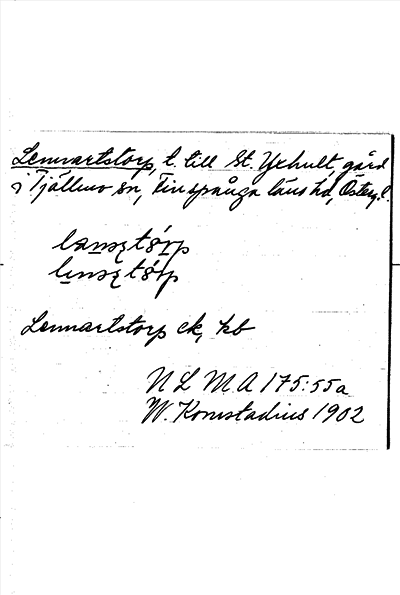 Lennartstorp, t. till St. Yxhult, gård
i Tjällmo sn, Finspånga läns hd,Österg.l.
Lennartstorp ck, kb
N L M A 175:55a
W. Komstadius 1902